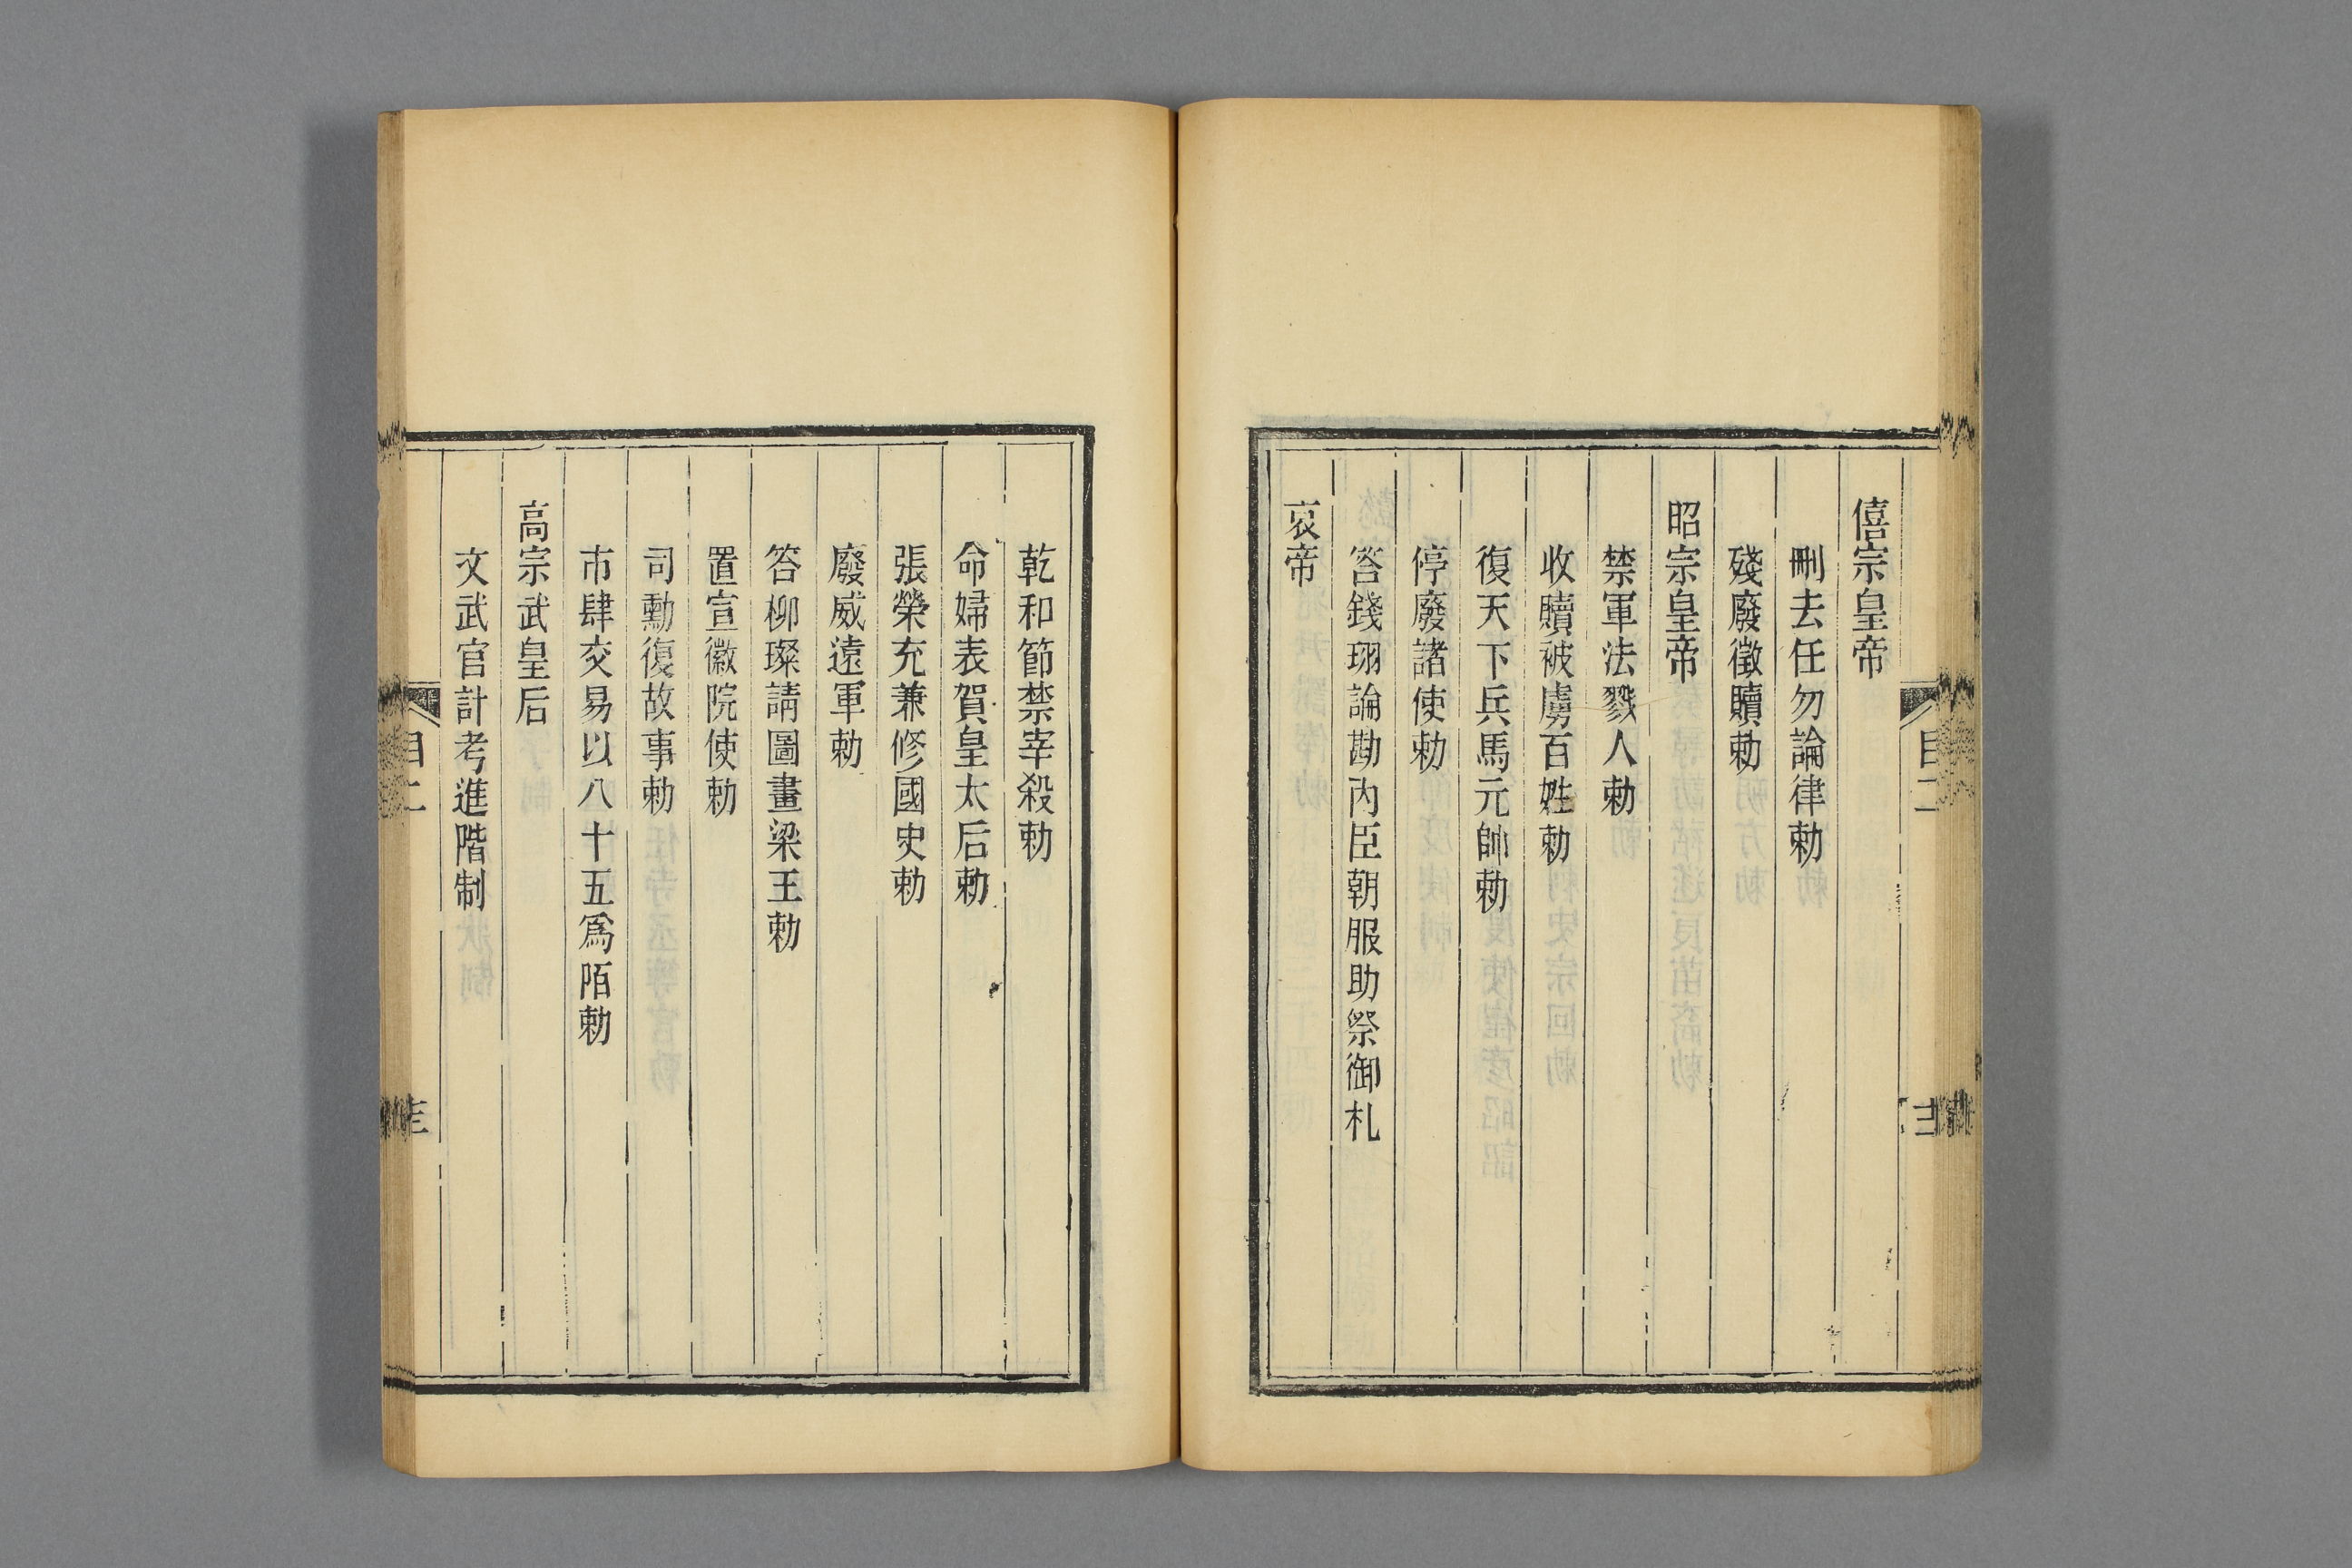 僖宗皇帝
刪去任勿論律勅
殘廢徵贖勅
昭宗皇帝
禁軍法戮人勅
收贖被虜百姓勅
復天下兵馬元帥勅
停廢諸使勅
答錢珝論勘內臣朝服助祭御札
哀帝
乾和節禁宰殺勅
命婦表賀皇太后勅
張榮充兼修國史勅
廢威遠軍勅
答柳璨請圖畫梁王勅
置宣徽院使勅
司勳復故事勅
市肆交易以八十五爲陌勅
高宗武皇后
文武官計考進階制
目二